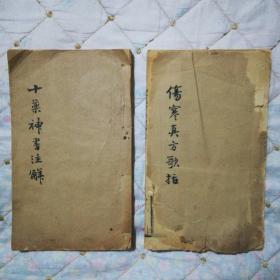 十藥神書注解
傷寒真方歌括